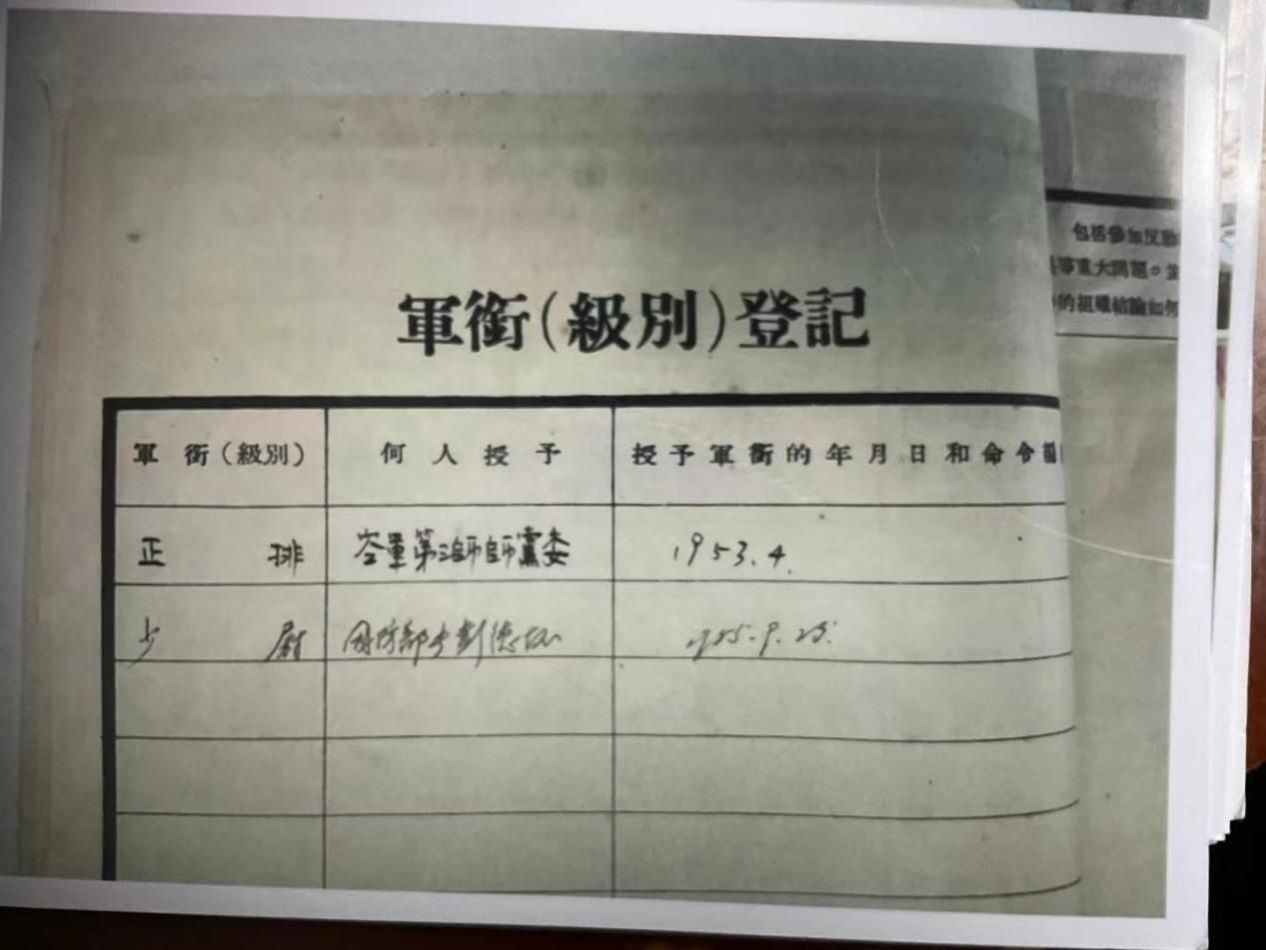 軍銜(級別)登記
軍銜(級別) 何人授予 授予軍銜的年月日和命令編
正排 空軍第三師師黨委 1953.4.
少尉 國防部長彭德懷 1955.9.
包括參加反動
等重大問題。並
的組織結論如何